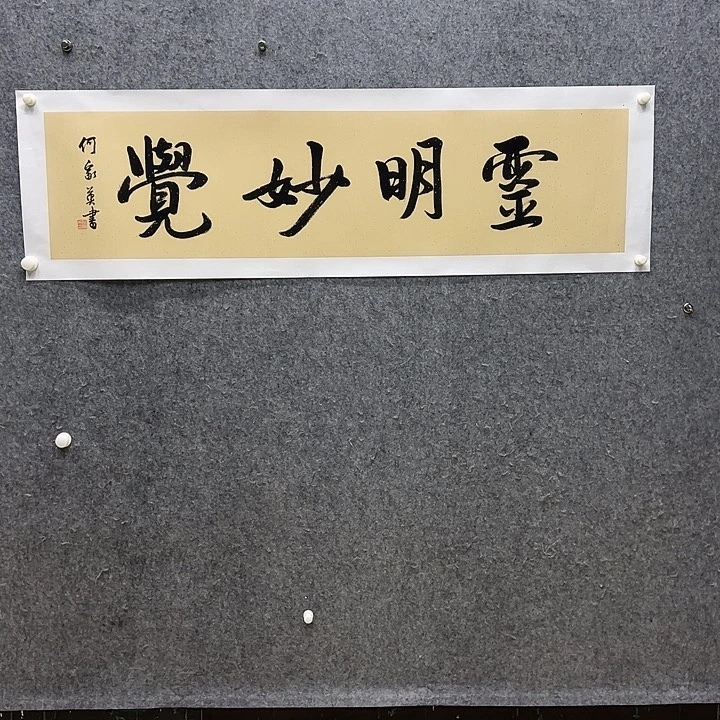 靈明妙覺
何家英書